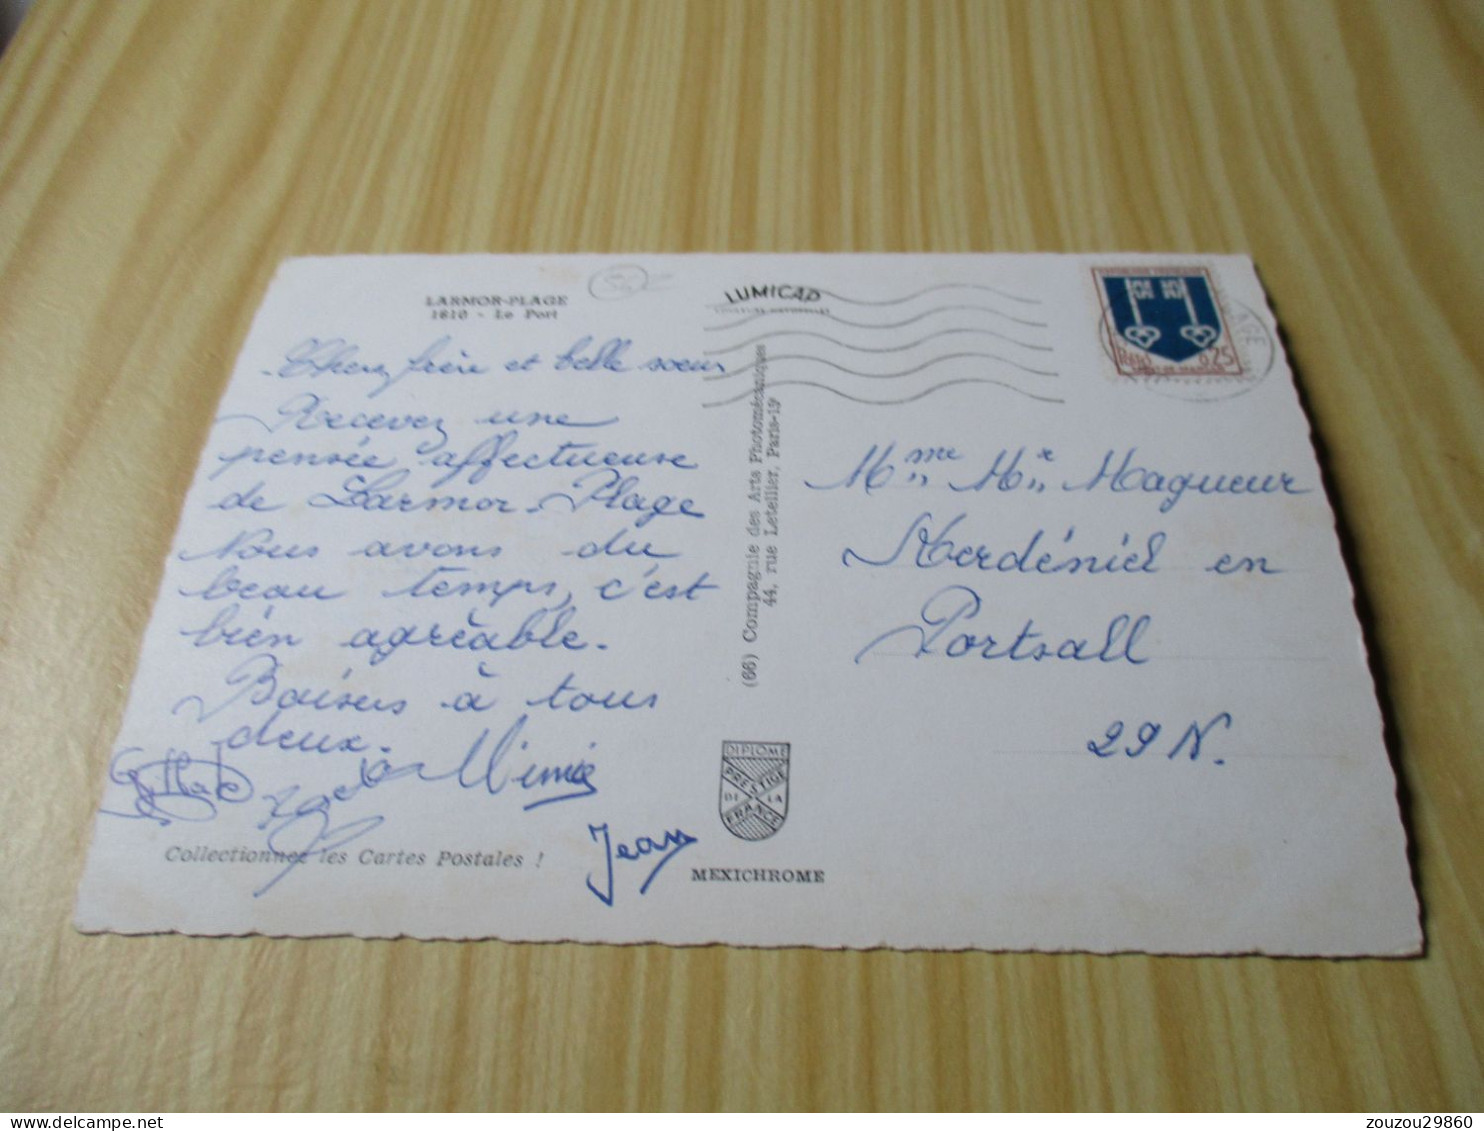 LARMOR-PLAGE
1610 - Le Port
LUMICAP
Chers frère et belle soeur
Recevez une
pensée affectueuse
de Larmor-Plage
Nous avons du
beau temps, c'est
bien agréable.
Baisers à tous
deux.
Mimie
Jean
Collectionnez les Cartes Postales !
(66) Compagnie des Arts Photomécaniques
44, rue Letellier, Paris-15e
DIPLOME
PRESTIGE
DE LA
FRANCE
MEXICHROME
REPUBLIQUE FRANCAISE
0,25
MONT-DE-MARSAN
Mme Mr Magueur
Kerdéniel en
Portsall
29 N.
zouzou29860